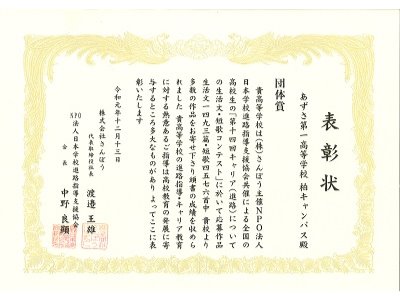 表彰状
あずさ第一高等学校 柏キャンパス殿
団体賞
貴高等学校は(株)さんぽう主催NPO法人
日本学校進路指導支援協会共催による全国の
高校生の「第十四回キャリア(進路)について
の生活文・短歌コンテスト」に於いて応募作品
生活文一四九三篇・短歌四五七六首中 貴校より
多数の作品をお寄せ下さり頭書の成績を収めら
れました 貴高等学校の進路指導・キャリア教育
に対する熱意あるご指導は高校教育の発展に寄
与するところ多大なものがあり よってここに表
彰いたします
令和元年十二月十三日
株式会社さんぽう
代表取締役社長 渡邉 王雄
NPO法人日本学校進路指導支援協会
会長 中野 良顯